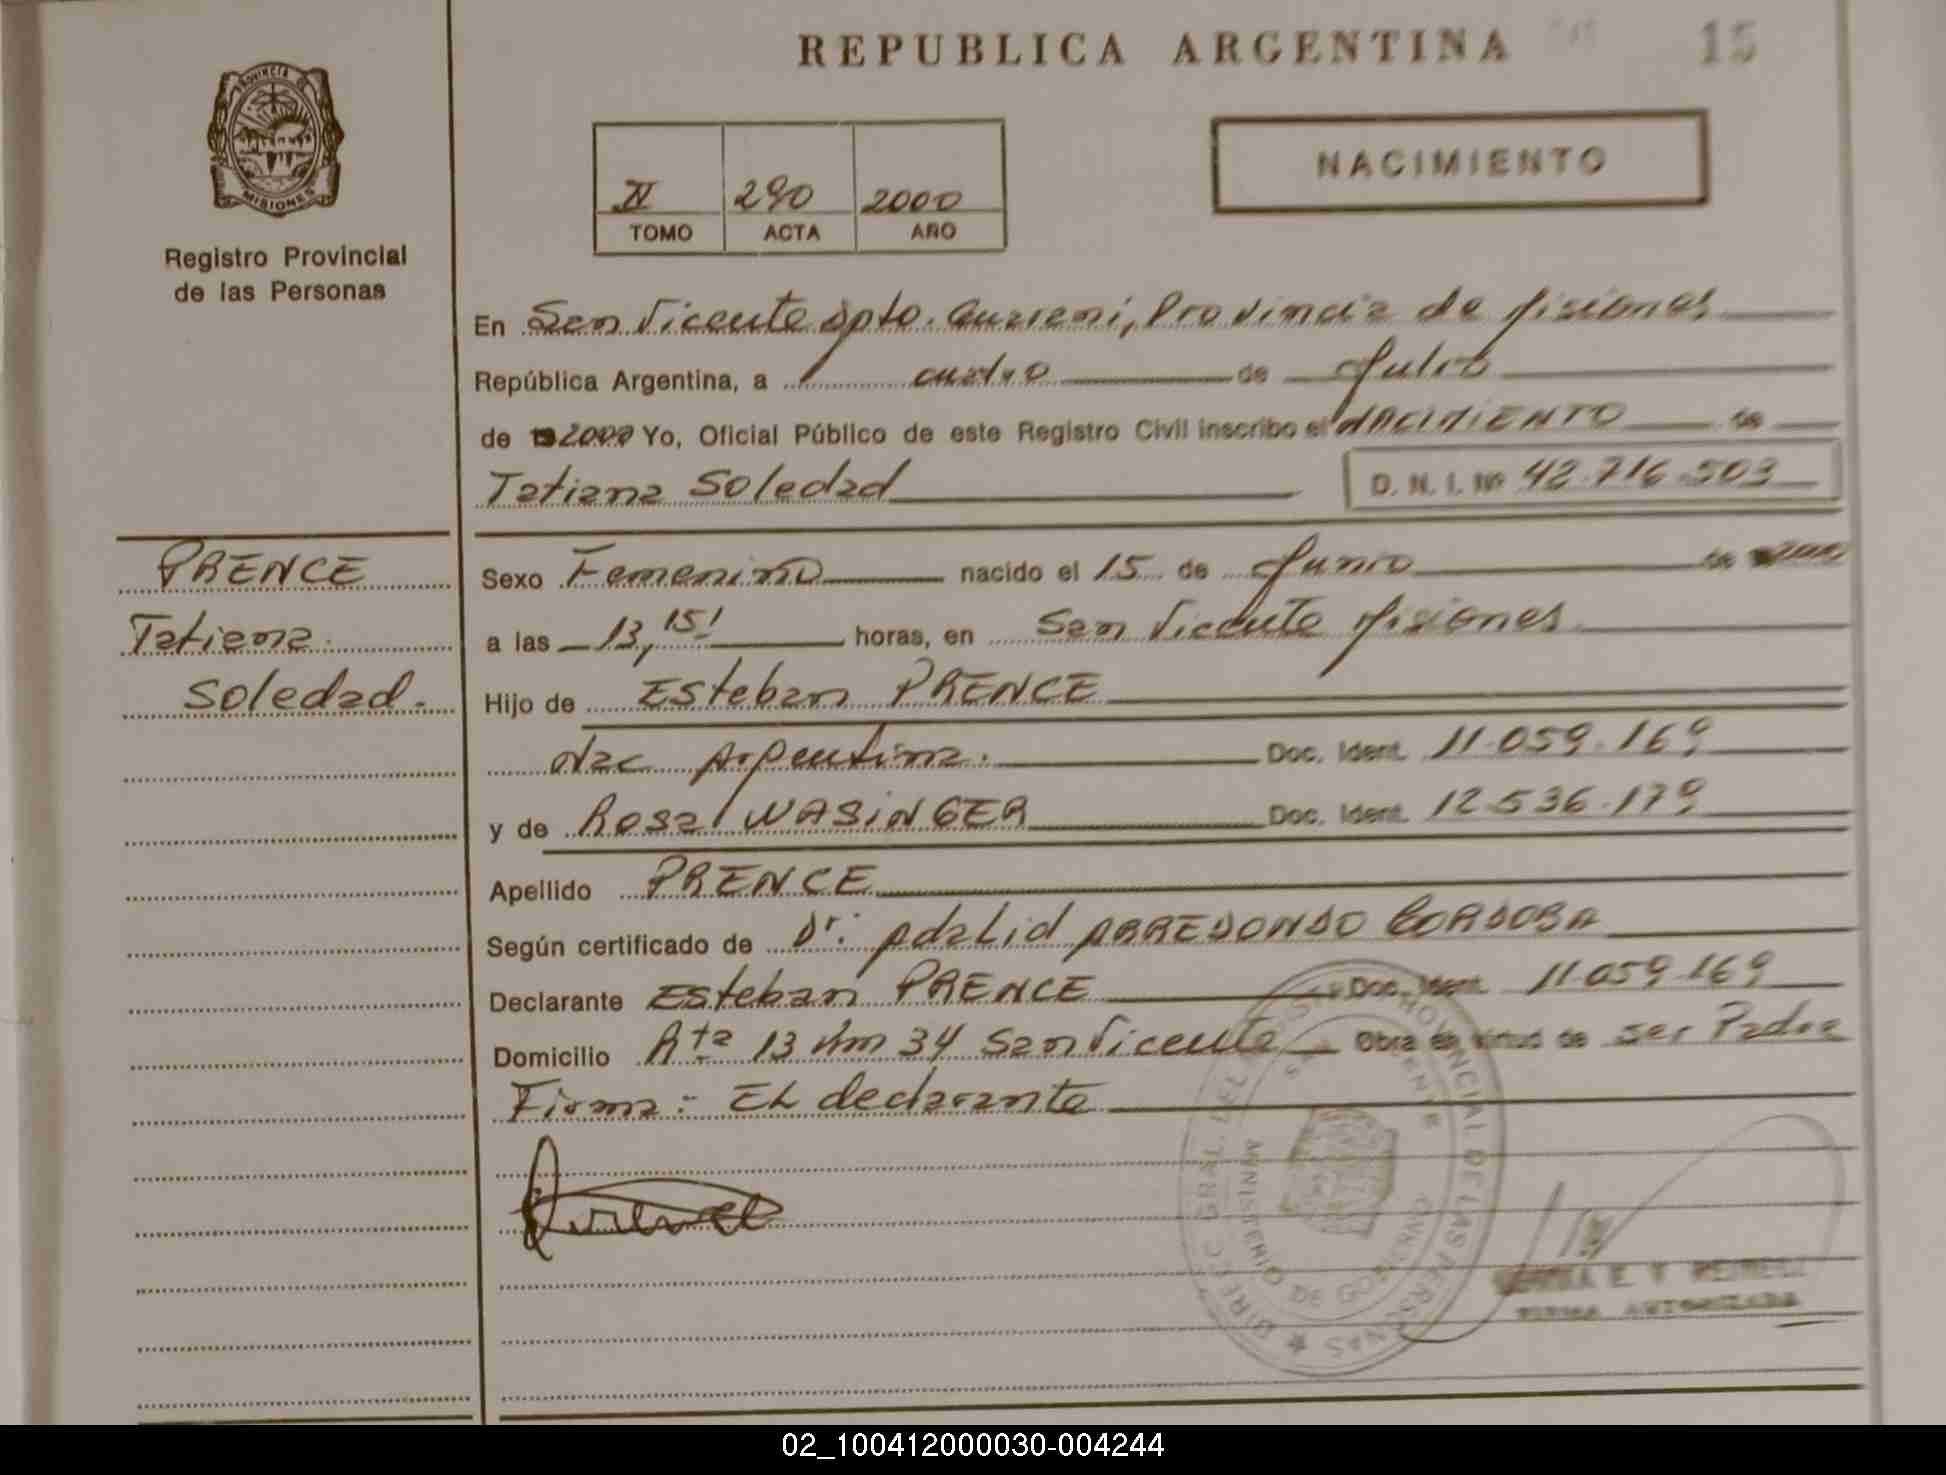 REPUBLICA ARGENTINA
15
PROVINCIA DE
MISIONES
Registro Provincial
de las Personas
II 290 2000
TOMO ACTA AÑO
NACIMIENTO
En San Vicente Dpto. Guaraní, Provincia de Misiones
República Argentina, a cuatro de Julio
de 2000 Yo, Oficial Público de este Registro Civil inscribo el NACIMIENTO de
Tatiana Soledad D. N. I. Nº 42.716.503
PRENCE
Tatiana
Soledad.
Sexo Femenino nacido el 15 de Junio de 2000
a las 13,15' horas, en San Vicente Misiones
Hijo de Esteban PRENCE
Nac Argentina. Doc. Ident. 11.059.169
y de Rosa WASINGER Doc. Ident. 12.536.179
Apellido PRENCE
Según certificado de Dr: Adalid ARREDONDO CORDOBA
Declarante Esteban PRENCE Doc. Ident. 11.059.169
Domicilio Rta 13 Km 34 San Vicente Obra en virtud de ser Padre
Firma: EL declarante
PROVINCIAL DE LAS PERSONAS
MINISTERIO DE GOBIERNO
FIRMA AUTORIZADA
02_100412000030-004244